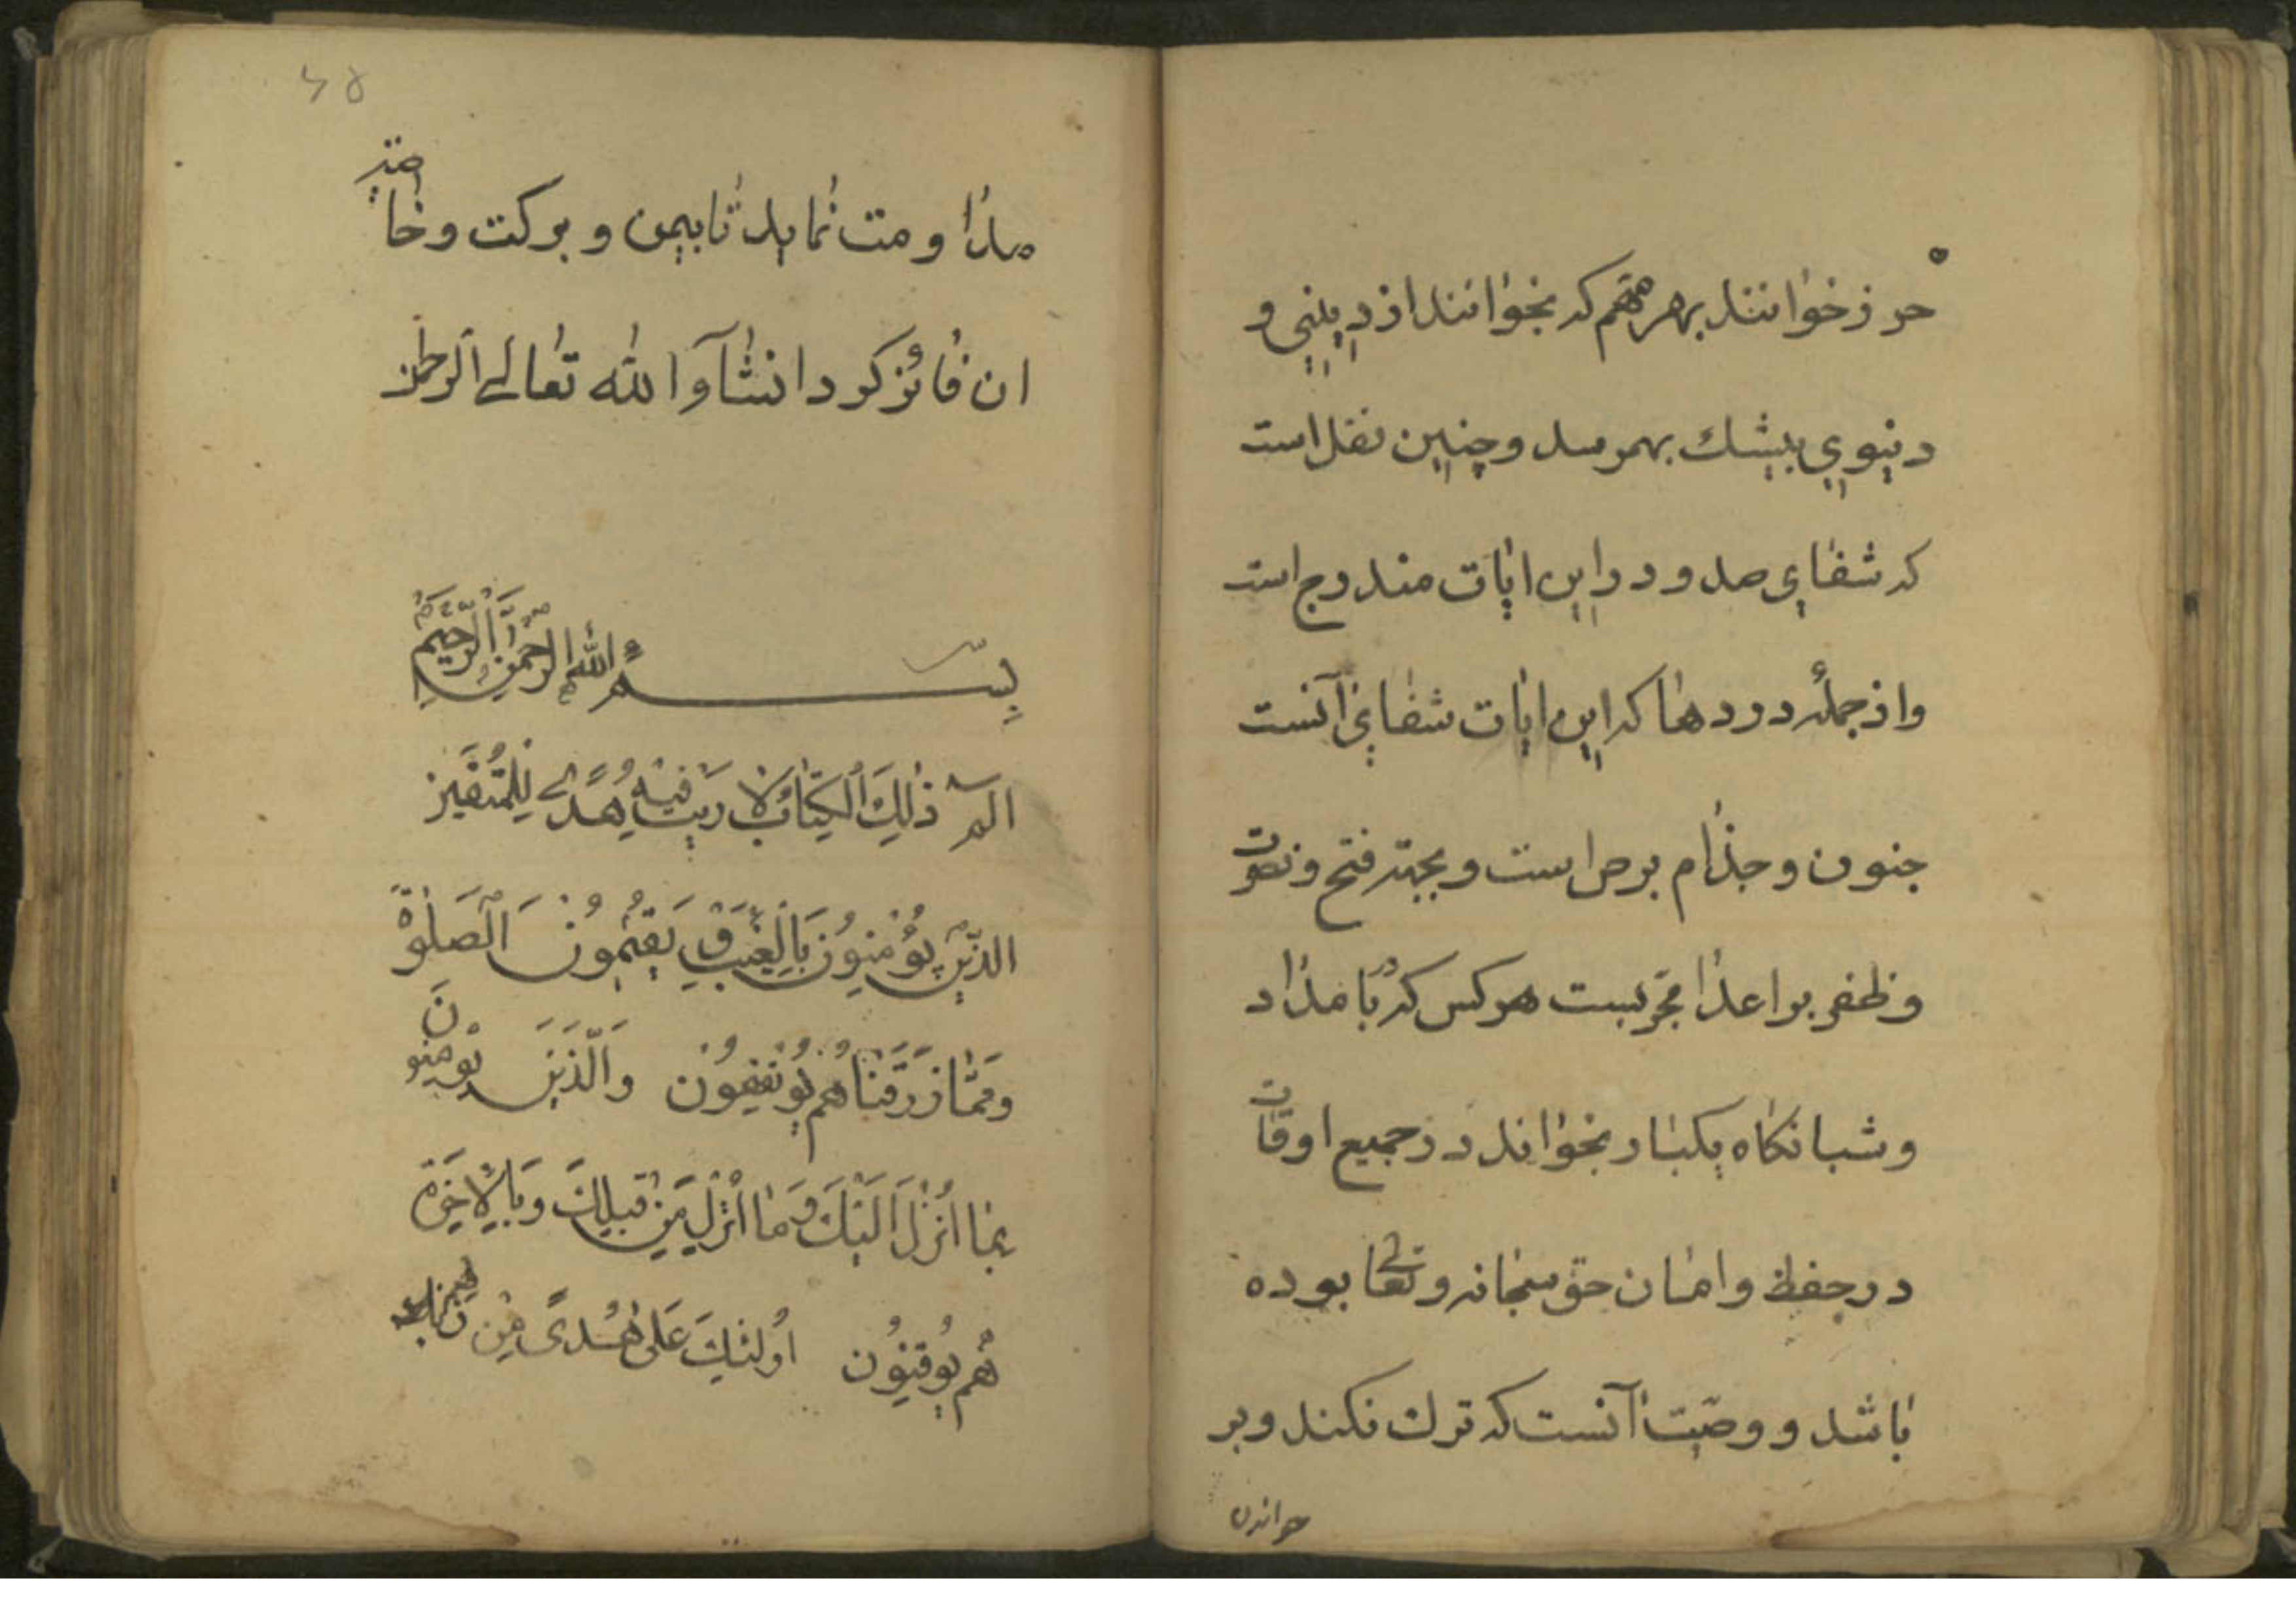 حرز خوانند بهر مهم که بخوانند از دینی و
دنیوی بیشك بهم رسد و چنین نقل است
که شفای صد درد در این ایات مندرج است
و از جمله دردها که این ایات شفای آنست
جنون و جذام برص است و بجهة فتح و نصرت
و ظفر بر اعدا مجربست هر کس که بامداد
و شبانکاه یکبار بخواند در جمیع اوقات
در حفظ و امان حق سبحانه و تعالی بوده
باشد و وصیت آنست که ترك نکند و بر
خواندن
مداومت نماید تا بیمن و برکت و خاصیة
ان فائز کردد انشآء الله تعالی الرحمن
بِسْمِ اللهِ الرَّحْمنِ الرَّحِیمِ
الم ذلِكَ الْكِتابُ لا رَيْبَ فيهِ هُدًى لِلْمُتَّقين
الذين يُؤْمِنُونَ بِالْغَيْبِ وَ يُقيمُونَ الصَّلوةَ
وَ مِمّا رَزَقْناهُمْ يُنْفِقُون وَالَّذينَ يُؤْمِنُونَ
بِما اُنْزِلَ اِلَيْكَ وَ ما اُنْزِلَ مِنْ قَبْلِكَ وَ بِالْاخِرَةِ
هُمْ يُوقِنُون اُولئِكَ عَلى هُدًى مِنْ رَبِّهِمْ